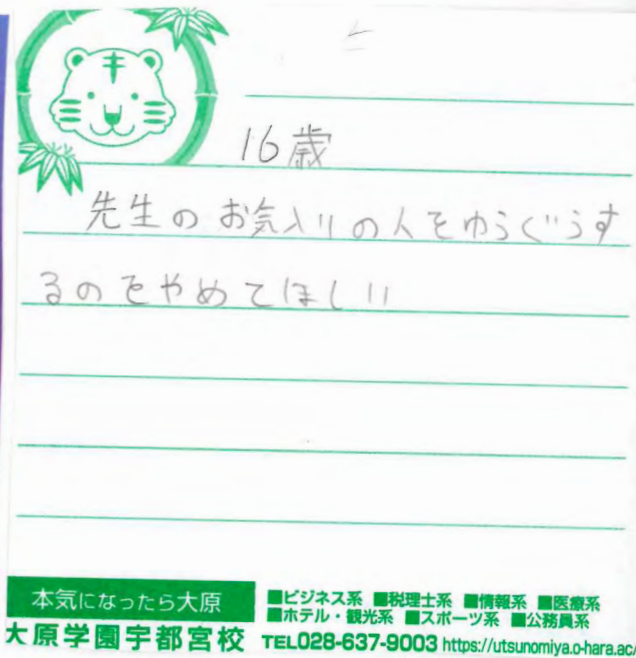 16歳
先生のお気入りの人をゆうぐうす
るのをやめてほしい
本気になったら大原
■ビジネス系 ■税理士系 ■情報系 ■医療系
■ホテル・観光系 ■スポーツ系 ■公務員系
大原学園宇都宮校 TEL028-637-9003 https://utsunomiya.o-hara.ac/